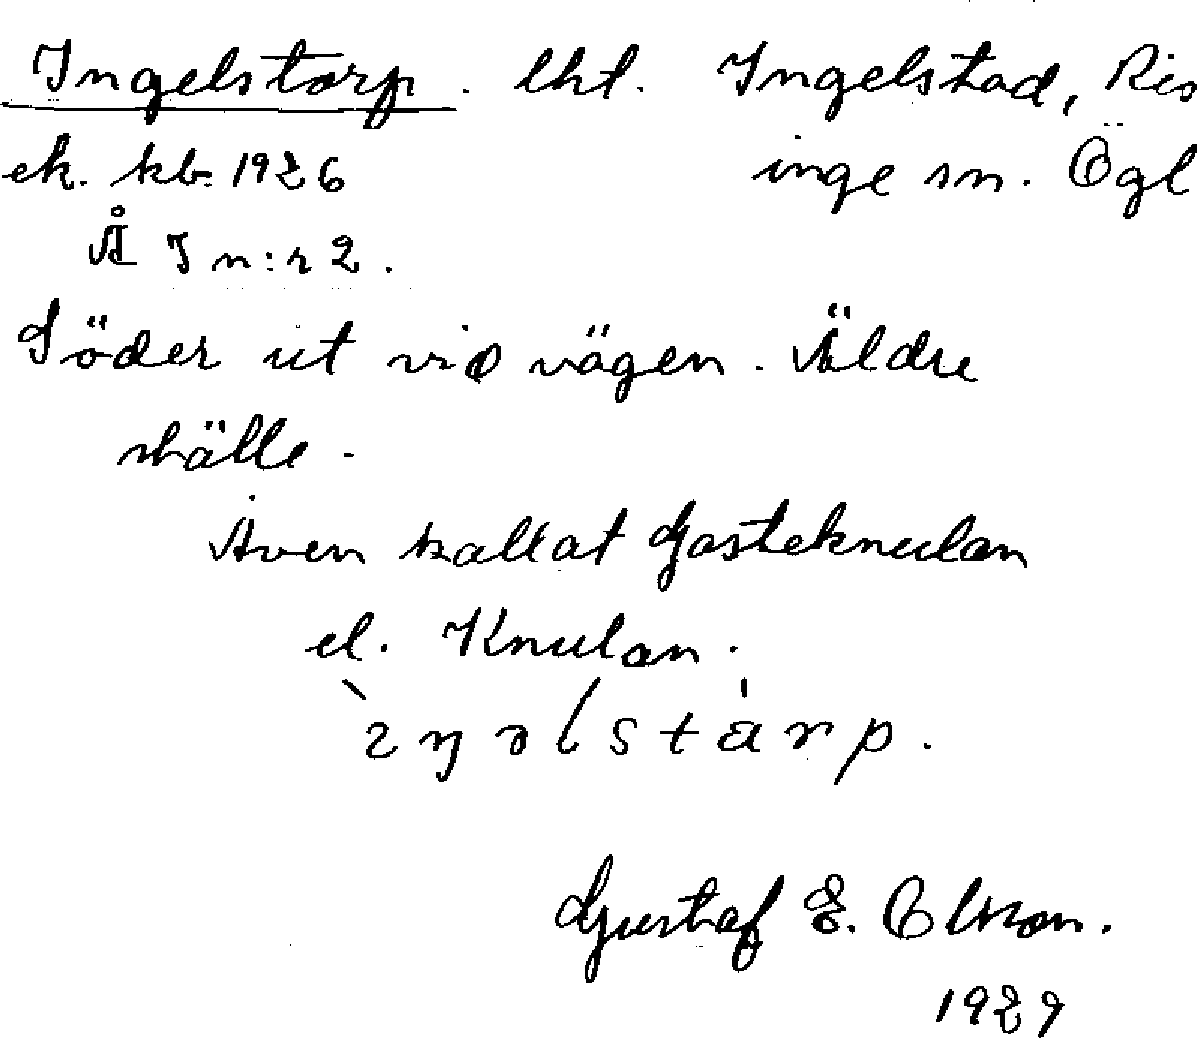 Ingelstorp. lht. Ingelstad, Ris
ek. kb. 1926 inge sn. Ögl
Å I n:r 2.
Söder ut vid vägen. Äldre
ställe.
Även kallat Gasteknulan
el. Knulan.
Gustaf E. Olsson.
1929